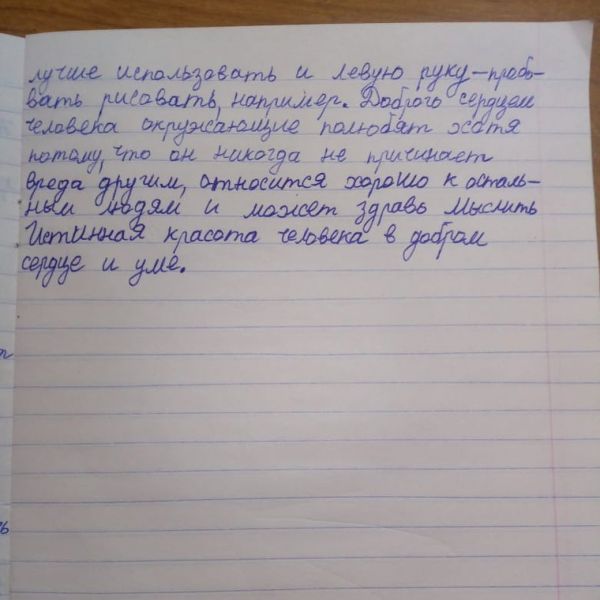 лучше использовать и левую руку-пробо-
вать рисовать, например. Доброго сердцем
человека окружающие полюбят хотя
потому, что он никогда не причинает
вреда другим, относится хорошо к осталь-
ным людям и может здравь мыслить
Истинная красота человека в добром
сердце и уме.